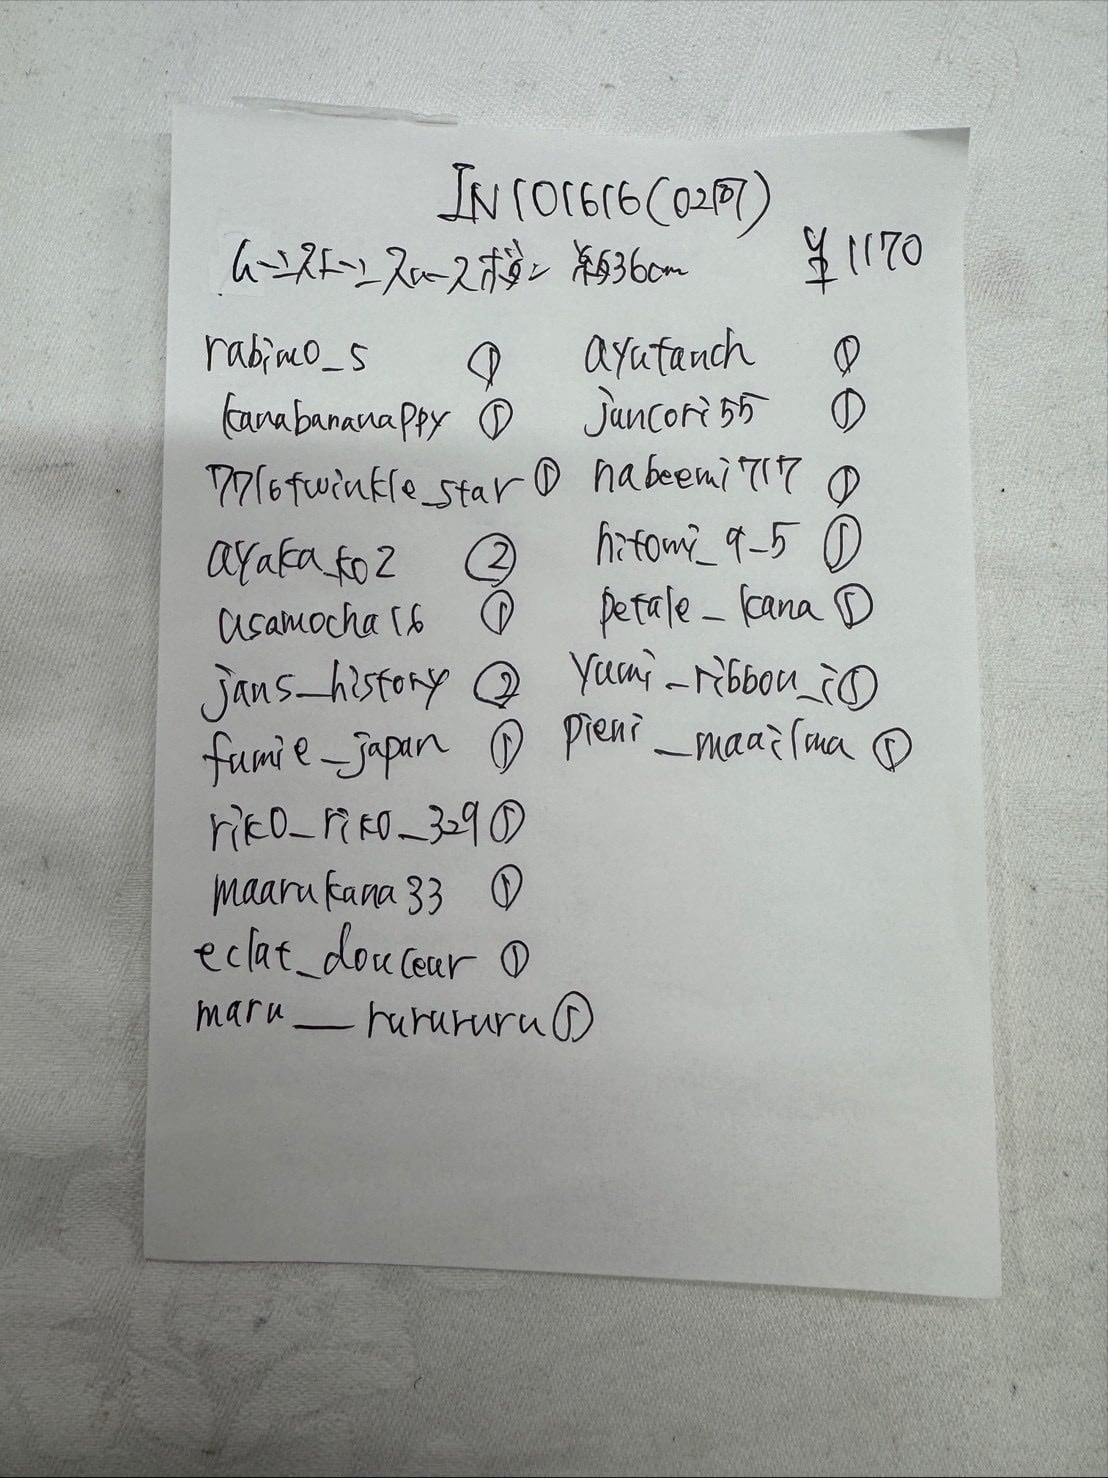 IN101616(02囫)
ムーンストーン スロースボタン 約36cm ¥1170
rabimo_s ①
kanabananappy ①
7716twinkle_star ①
ayaka_ko2 ②
asamocha16 ①
jans_history ②
fumie_japan ①
riko_riko_329 ①
maarukana33 ①
eclat_douceur ①
maru__rurururu ①
ayutanch ①
juncori55 ①
nabeemi717 ①
hitomi_9_5 ①
petale_kana ①
yumi_ribbon_i ①
pieni_maailma ①